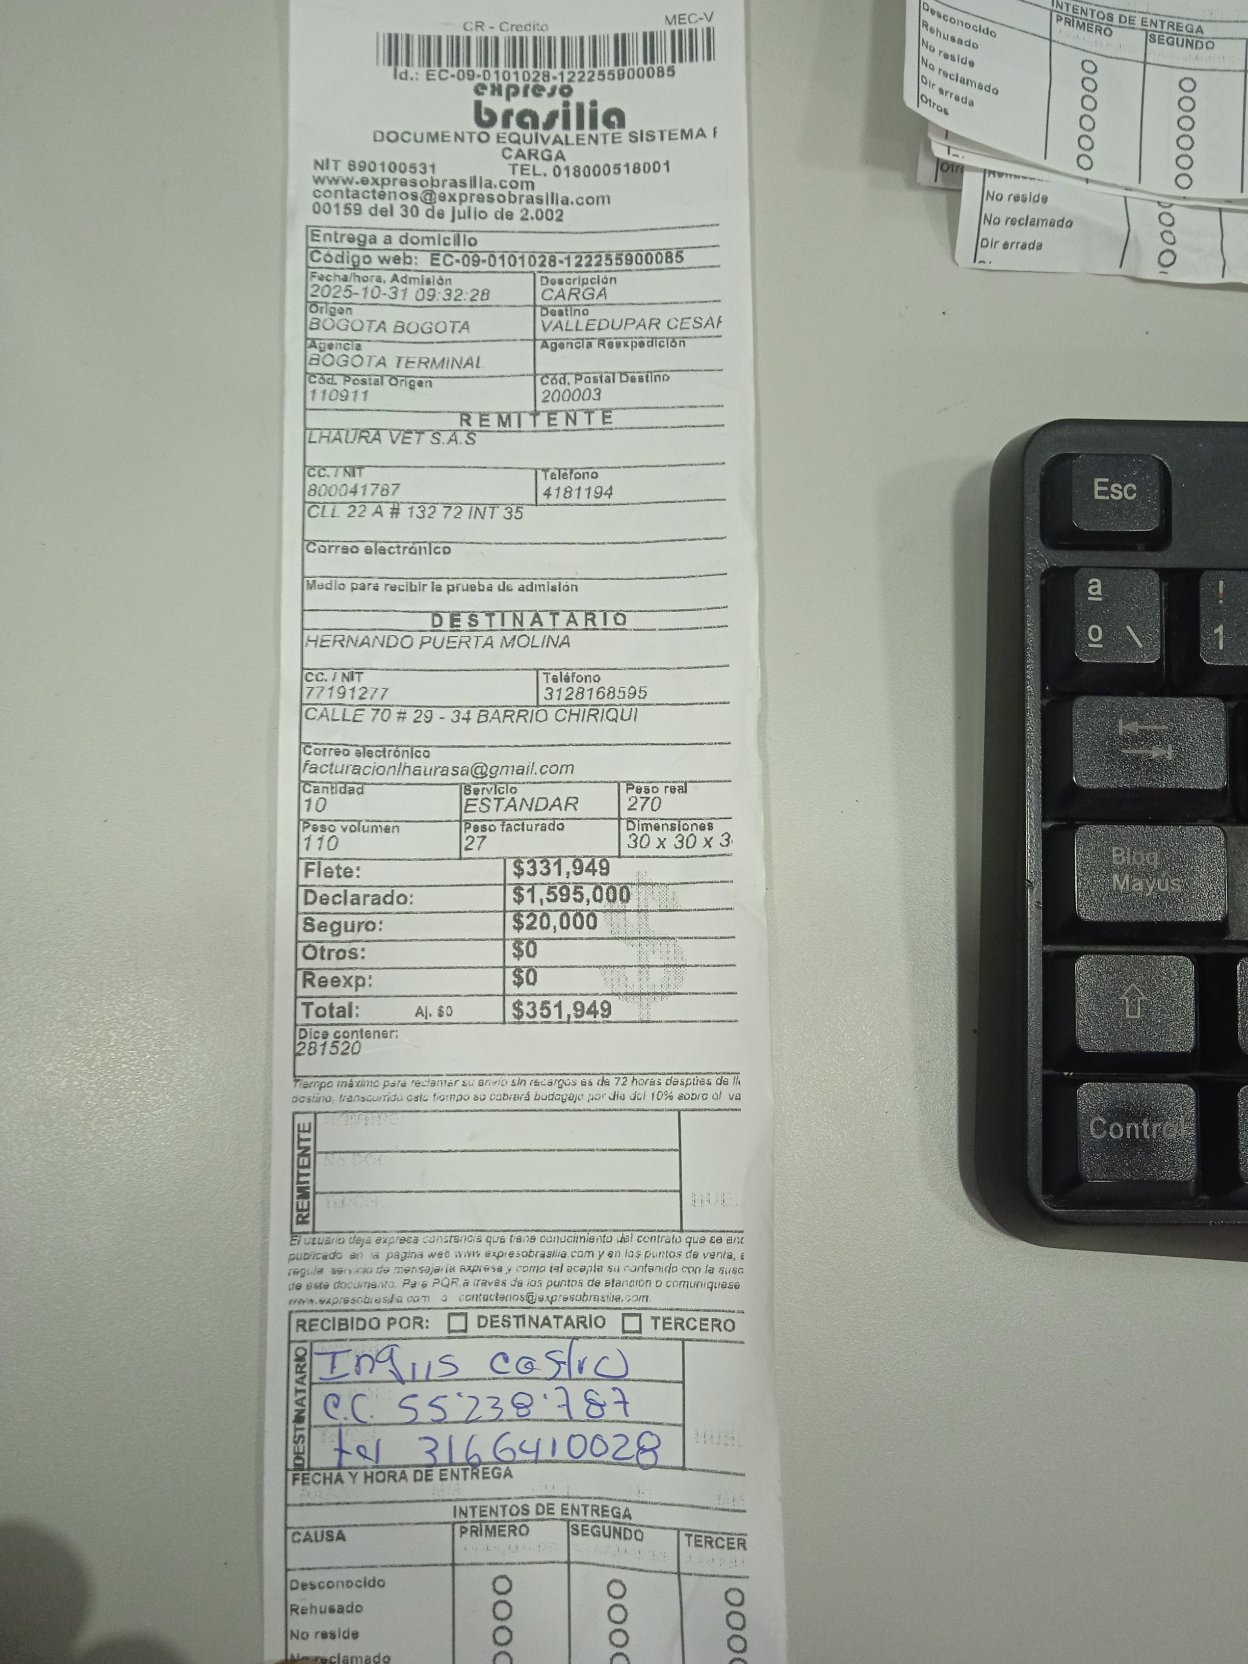 CR - Credito MEC-V
Id.: EC-09-0101028-122255900085
expreso
brasilia
DOCUMENTO EQUIVALENTE SISTEMA
CARGA
NIT 890100531 TEL. 018000518001
www.expresobrasilia.com
contactenos@expresobrasilia.com
00159 del 30 de julio de 2.002
Entrega a domicilio
Código web: EC-09-0101028-122255900085
Fecha/hora. Admisión Descripción
2025-10-31 09:32:28 CARGA
Origen Destino
BOGOTA BOGOTA VALLEDUPAR CESAR
Agencia Agencia Reexpedición
BOGOTA TERMINAL
Cód. Postal Origen Cód. Postal Destino
110911 200003
REMITENTE
LHAURA VET S.A.S
CC. / NIT Teléfono
800041787 4181194
CLL 22 A # 132 72 INT 35
Correo electrónico
Medio para recibir la prueba de admisión
DESTINATARIO
HERNANDO PUERTA MOLINA
CC. / NIT Teléfono
77191277 3128168595
CALLE 70 # 29 - 34 BARRIO CHIRIQUI
Correo electrónico
facturacionlhaurasa@gmail.com
Cantidad Servicio Peso real
10 ESTANDAR 270
Peso volumen Peso facturado Dimensiones
110 27 30 x 30 x 3
Flete: $331,949
Declarado: $1,595,000
Seguro: $20,000
Otros: $0
Reexp: $0
Total: Aj. $0 $351,949
Dice contener:
281520
Tiempo máximo para reclamar su envío sin recargos es de 72 horas después de
destino, transcurrido este tiempo se cobrará bodegaje por día del 10% sobre el va
REMITENTE
El usuario deja expresa constancia que tiene conocimiento del contrato que se enc
publicado en la página web www.expresobrasilia.com y en los puntos de venta,
regula servicio de mensajería expresa y como tal acepta su contenido con la susc
de este documento. Para PQR a través de los puntos de atención o comuníquese
www.expresobrasilia.com o contactenos@expresobrasilia.com.
RECIBIDO POR: DESTINATARIO TERCERO
DESTINATARIO
castro
C.C. 55'238'787
tel 3166410028
FECHA Y HORA DE ENTREGA
INTENTOS DE ENTREGA
CAUSA PRIMERO SEGUNDO TERCER
Desconocido
Rehusado
No reside
No reclamado
INTENTOS DE ENTREGA
PRIMERO SEGUNDO
Desconocido
Rehusado
No reside
No reclamado
Dir errada
Otros
No reside
No reclamado
Dir errada
Esc
ª
º \
!
1
Bloq
Mayus
Control